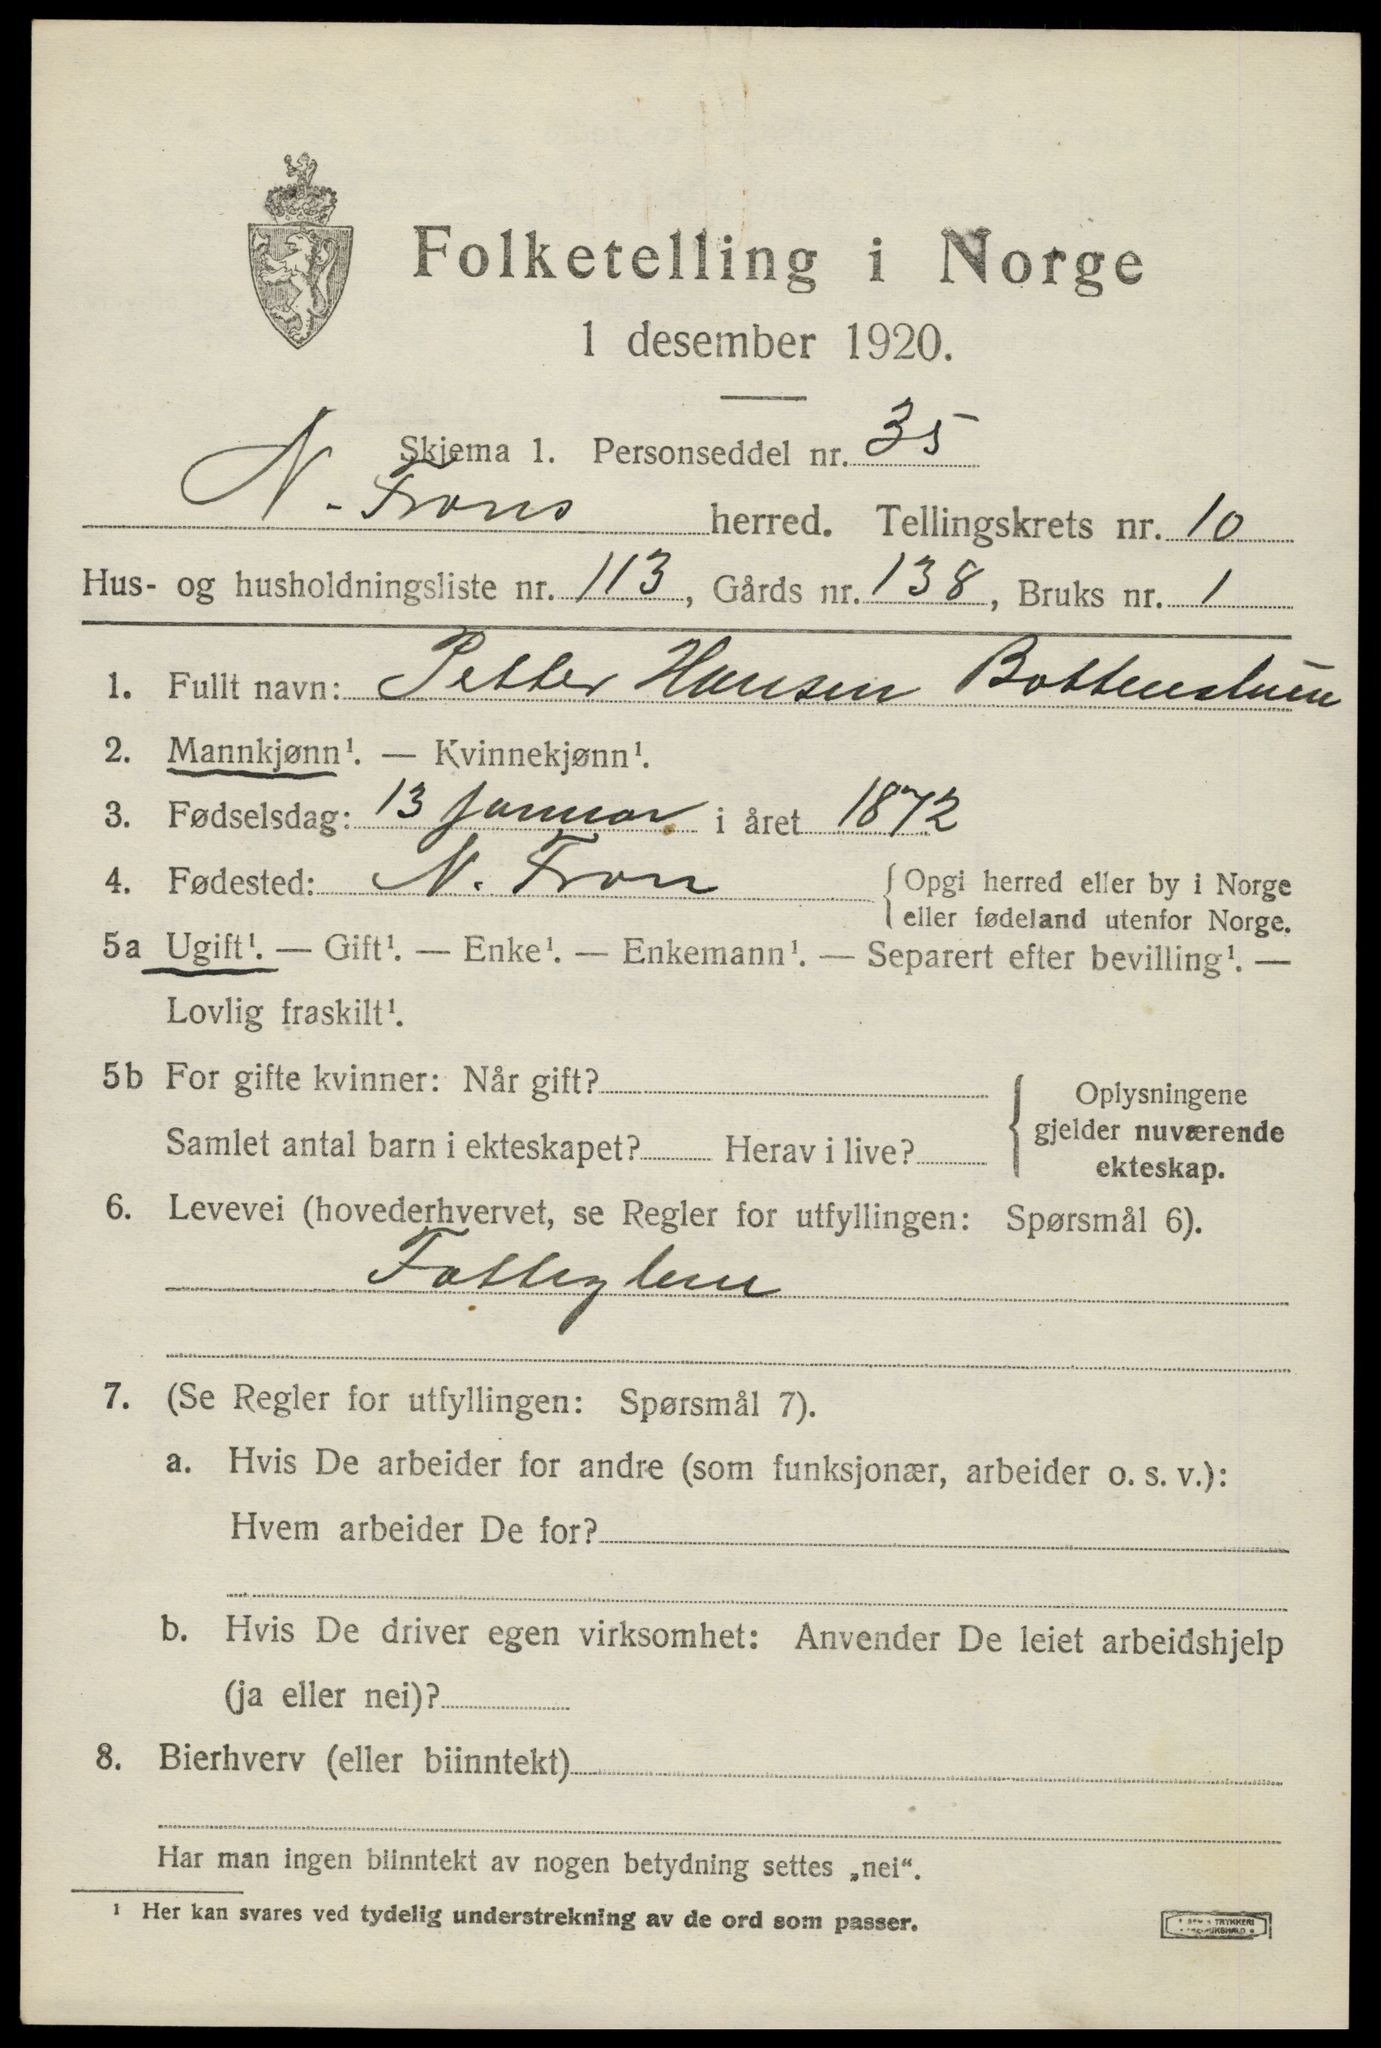 Folketelling i Norge
1 desember 1920.
Skjema 1. Personseddel nr. 35
N. Frons herred. Tellingskrets nr. 10
Hus- og husholdningsliste nr. 113, Gårds nr. 138, Bruks nr. 1
1. Fullt navn: Petter Hansen
2. Mannkjønn¹. — Kvinnekjønn¹.
3. Fødselsdag: 13 januar i året 1872
4. Fødested: N. Fron { Opgi herred eller by i Norge
eller fødeland utenfor Norge.
5a Ugift¹. — Gift¹. — Enke¹. — Enkemann¹. — Separert efter bevilling¹. —
Lovlig fraskilt¹.
5b For gifte kvinner: Når gift?
Samlet antal barn i ekteskapet? Herav i live?
{ Oplysningene
gjelder nuværende
ekteskap.
6. Levevei (hovederhvervet, se Regler for utfyllingen: Spørsmål 6).
Fattiglem
7. (Se Regler for utfyllingen: Spørsmål 7).
a. Hvis De arbeider for andre (som funksjonær, arbeider o. s. v.):
Hvem arbeider De for?
b. Hvis De driver egen virksomhet: Anvender De leiet arbeidshjelp
(ja eller nei)?
8. Bierhverv (eller biinntekt)
Har man ingen biinntekt av nogen betydning settes „nei“.
¹ Her kan svares ved tydelig understrekning av de ord som passer.
TRYKKERI